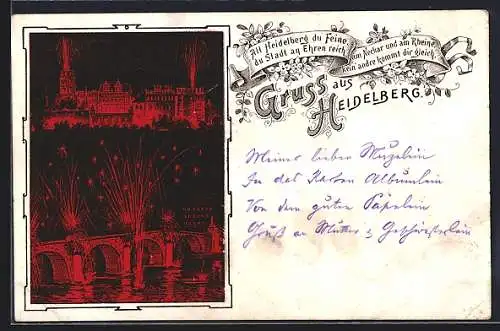 Alt Heidelberg du Feine,
du Stadt an Ehren reich,
am Neckar und am Rheine
kein andre kommt dir gleich.
Gruss aus
Heidelberg.
Meiner lieben
In das Karten Albumlein
Von dem guten Papalein
Gruß an Mutter & Geschwisterlein